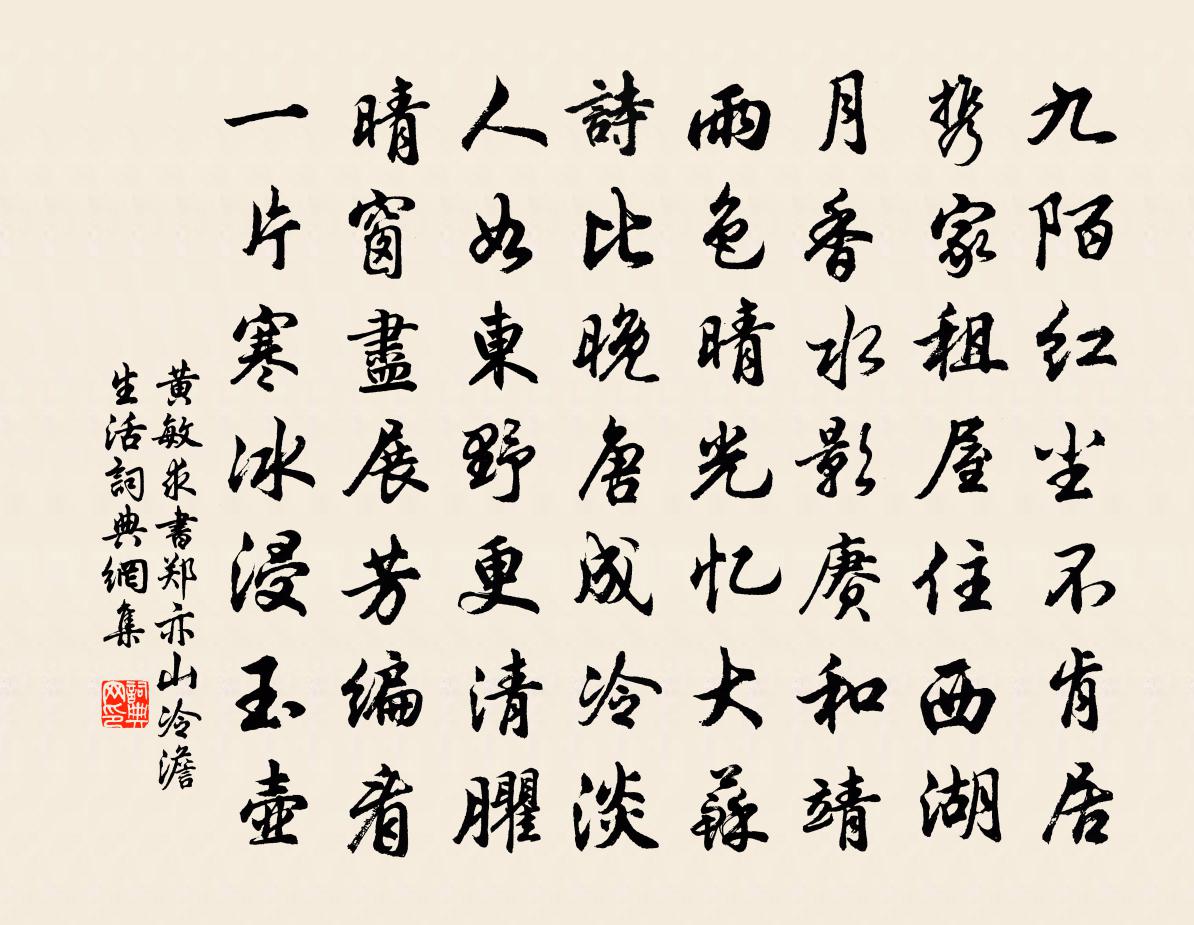 九陌红尘不肯居
携家租屋住西湖
月香水影赓和靖
雨色晴光忆大蘇
詩比晚唐成冷淡
人如東野更清臞
晴窗盡展芳编看
一片寒冰浸玉壶
黄敏求书郑亦山冷澹
生活詞典網集
詞典网印